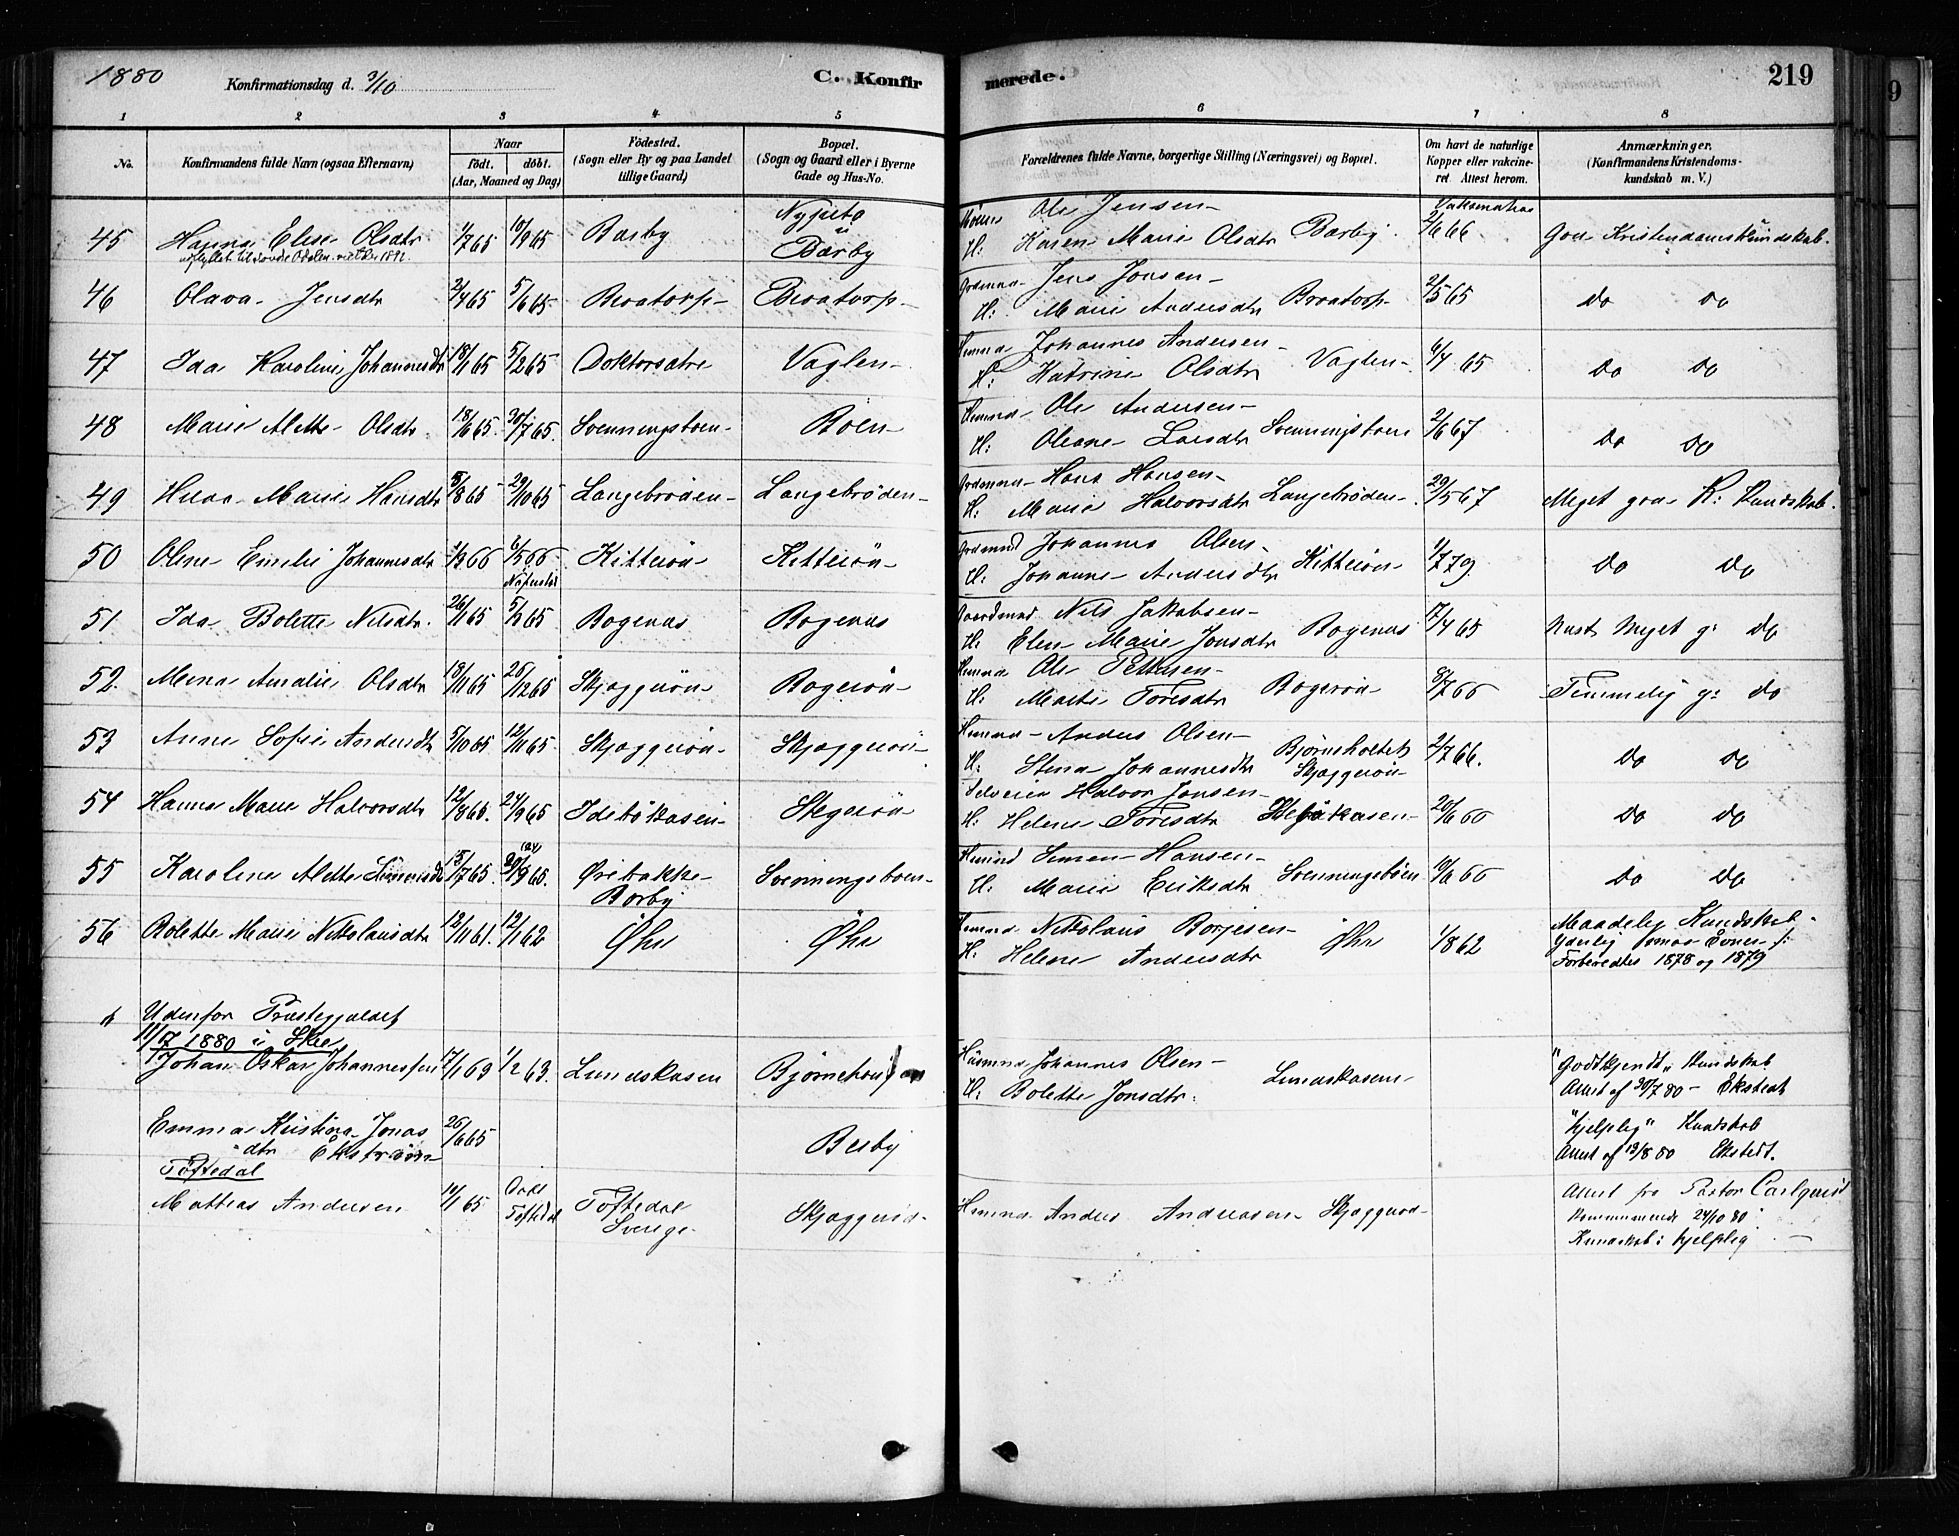 1880 Konfirmationsdag d. 3/10 C. Konfirmerede. 219
1 2 3 4 5 6 7 8
No. Konfirmandens fulde Navn (ogsaa Efternavn) Naar født. døbt. (Aar, Maaned og Dag) Fødested. (Sogn eller By og paa Landet tillige Gaard) Bopæl. (Sogn og Gaard eller i Byerne Gade og Hus-No. Forældrenes fulde Navne, borgerlige Stilling (Næringsvei) og Bopæl. Om havt de naturlige Kopper eller vakcineret. Attest herom. Anmærkninger. (Konfirmandens Kristendomskundskab m. V.)
45 Hanna Elise Olsdtr 1/7 65 10/9 65 Basby Nypeto u Bærby Ole Jensen H: Karen Marie Olsdtr Bærby 2/6 66 God Kristendomskundskab.
46 Olava Jensdtr 2/4 65 5/6 65 Braatorp Braatorp Jens Jonsen H: Marie Andersdtr Braatorp 2/5 65 do do
47 Ida Karoline Johannesdtr 18/1 65 5/2 65 Vaglen Johannes Andersen H: Katrine Olsdtr Vaglen 6/7 65 do do
48 Marie Alette Olsdtr 18/6 65 30/7 65 Svenningsboen Boen Ole Andersen H: Oleane Larsdtr Svenningsboen 2/6 67 do do
49 Marie Hansdtr 5/8 65 29/10 65 Langebrøden Langebrøden Hans Hansen H: Marie Halvorsdtr Langebrøden 29/5 67 Meget god K: Kundskab.
50 Oline Emelie Johannesdtr 1/3 66 6/5 66 Kitterön Kitterön Johannes Olsen H: Johanne Andersdtr Kitterön 1/7 79 do do
51 Ida Bolette Nilsdtr 26/1 65 5/3 65 Bogenæs Bogenæs Nils Jakobsen H: Elen Marie Jonsdtr Bogenæs 17/4 65 Næst Meget g: do
52. Mina Amalie Olsdtr 18/11 65 26/12 65 Skjaggerön Bogerön Ole Pettersen H: Marte Toresdtr Bogerön 8/7 66 Temmelig g: do
53 Anne Sofie Andersdtr 5/10 65 12/11 65 Skjaggerön Skjaggerön Anders Olsen H: Stina Johannesdtr Bjørnsholtet Skjaggerön 2/7 66. do do
54 Hanna Marie Halvorsdtr 12/8 65. 24/9 65 Stegerön Halvor Jonsen H: Helene Toresdtr 20/6 66 do do
55 Karoline Alette Simensdtr 15/7 65. Øvibakke Borby Svenningsboen Simen Hansen H: Marie Eriksdtr Svenningsboen 10/6 66 do do
56 Bolette Marie Nikolaisdtr 12/11 61. 12/1 62 Øhr Øhr Nikolaus Borgesen H. Helene Andersdtr Øhr 1/8 62 Maadelig Kundskab
Yderlig smaa Evner
Forberedtes 1878 og 1879
Udenfor Præstegjældet
11/7 1880 i Skee
Johan Oskar Johannessen 17/1 63 1/2 63. Lundskasen Johannes Olsen H: Bolette Jonsdtr. Lundskasen "Godtkjendt" Kundskab
Attest af 30/7 80 - Ekstedt
Emma Kristina Jonasdtr Ekstrøm 26/6 65 Besby "Hjelpelig" Kundskab
Attest af 12/8 80 Ekstedt.
Töftedal
Mattias Andersen 10/1 65 Töftedal Töftedal Sverige Skjaggerid Anders Andreasen Skjaggerön Attest fra Pastor Carlqvist
24/10 80
Kundskab: hjelpelig